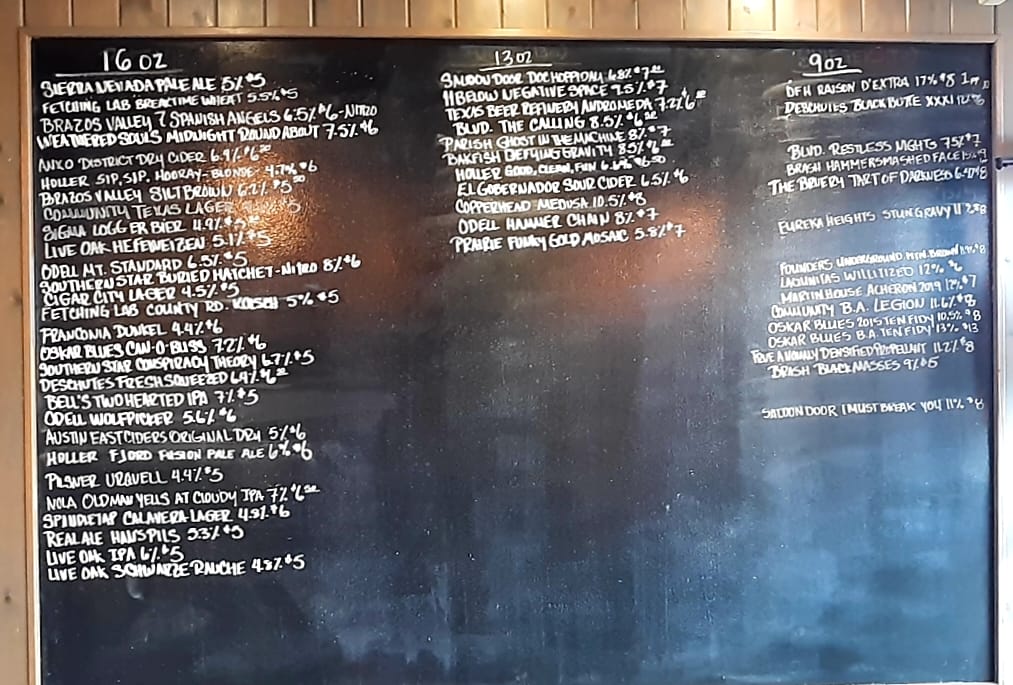 16 OZ
SIERRA NEVADA PALE ALE 5% $5
FETCHING LAB BREAKTIME WHEAT 5.5% $5
BRAZOS VALLEY 7 SPANISH ANGELS 6.5% $6 -NITRO
WEATHERED SOULS MIDNIGHT ROUND ABOUT 7.5% $6
ANXO DISTRICT DRY CIDER 6.9% $6.50
HOLLER SIP, SIP, HOORAY - BLONDE 4.7% $6
BRAZOS VALLEY SILT BROWN 6.2% $5.50
COMMUNITY TEXAS LAGER
SIGMA LOGG ER BIER 4.9% $5
LIVE OAK HEFEWEIZEN 5.1% $5
ODELL MT. STANDARD 6.5% $5
SOUTHERN STAR BURIED HATCHET - NITRO 8% $6
CIGAR CITY LAGER 4.5% $5
FETCHING LAB COUNTY RD. KOLSCH 5% $5
FRANCONIA DUNKEL 4.4% $6
OSKAR BLUES CAN-O-BLISS 7.2% $6
SOUTHERN STAR CONSPIRACY THEORY 6.7% $5
DESCHUTES FRESH SQUEEZED 6.4% $6.50
BELL'S TWO HEARTED IPA 7% $5
ODELL WOLFPICKER 5.6% $6
AUSTIN EASTCIDERS ORIGINAL DRY 5% $6
HOLLER FJORD FUSION PALE ALE 6% $6
PILSNER URQUELL 4.4% $5
NOLA OLD MAN YELLS AT CLOUDY IPA 7% $6.50
SPINDLETAP CALAVERA LAGER 4.9% $6
REAL ALE HANS PILS 5.3% $5
LIVE OAK IPA 6% $5
LIVE OAK SCHWARZE RAUCHE 4.8% $5
13 OZ
SALOON DOOR DOC HOPPIDAY 6.8% $7.50
11 BELOW NEGATIVE SPACE 9.5% $7
TEXAS BEER REFINERY ANDROMEDA 7.2% $6.50
BLVD. THE CALLING 8.5% $6.50
PARISH GHOST IN THE MACHINE 8% $7
BAKFISH DEFYING GRAVITY 8.5%
HOLLER GOOD, CLEAN, FUN
EL GOBERNADOR SOUR CIDER 6.5% $6
COPPERHEAD MEDUSA 10.5% $8
ODELL HAMMER CHAIN 8% $7
PRAIRIE FUNKY GOLD MOSAIC 5.8% $7
9 OZ
DFH RAISON D'EXTRA 17% $8
DESCHUTES BLACK BUTTE XXXI 12% $6
BLVD. RESTLESS NIGHTS 7.5% $7
BRASH HAMMERSMASHED FACE
THE BRUERY TART OF DARKNESS $8
EUREKA HEIGHTS STUNGRAVY II $8
FOUNDERS UNDERGROUND MTN. BROWN $8
LAGUNITAS WILLITIZED 12% $6
MARTIN HOUSE ACHERON 2019 12% $7
COMMUNITY B.A. LEGION 11.6% $8
OSKAR BLUES 2015 TEN FIDY 10.5% $8
OSKAR BLUES B.A. TEN FIDY 13% $13
ANOMALY DENSIFIED PROPELLANT 11.2% $8
BRASH BLACK MASSES 9% $5
SALOON DOOR I MUST BREAK YOU 11% $8